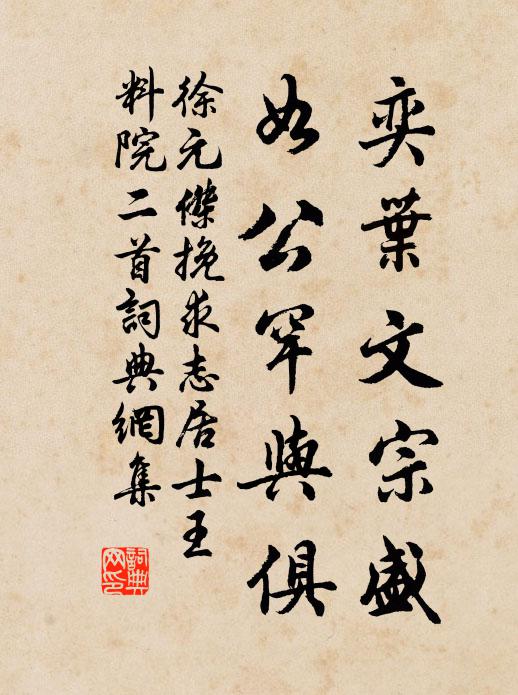 奕葉文宗盛
如公罕與俱
徐元傑挽求志居士王
料院二首詞典網集
詞典
网印